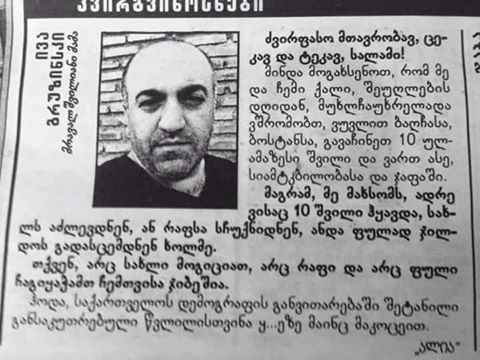 კვირგვინოსნები
ივა
გრუზინსკი
მრავალშვილიანი მამა
ძვირფასო მთავრობავ, ცე-
კავ და ტეკავ, სალამი!
მინდა მოგახსენოთ, რომ მე
და ჩემი ქალი, შეუღლების
დღიდან, მუხლჩაუხრელადა
ვშრომობთ, ვუვლით ბაღჩასა,
ბოსტანსა, გავაჩინეთ 10 ულ-
ამაზესი შვილი და ვართ ასე,
სიამტკბილობასა და ჯაფაში.
მაგრამ, მე მახსომს, ადრე
ვისაც 10 შვილი ჰყავდა, სახ-
ლს აძლევდნენ, ან რაფსა სჩუქნიდნენ, ანდა ფულად ჯილ-
დოს გადასცემდნენ ხოლმე.
თქვენ, არც სახლი მოგიციათ, არც რაფი და არც ფული
ჩაგიყავამთ ჩემთვისა ჯიბეშია.
ჰოდა, საქართველოს დემოგრაფის განვითარებაში შეტანილი
განსაკუთრებული წვლილისთვინა ყ...ეზე მაინც მაკოცეით.
„ალია“